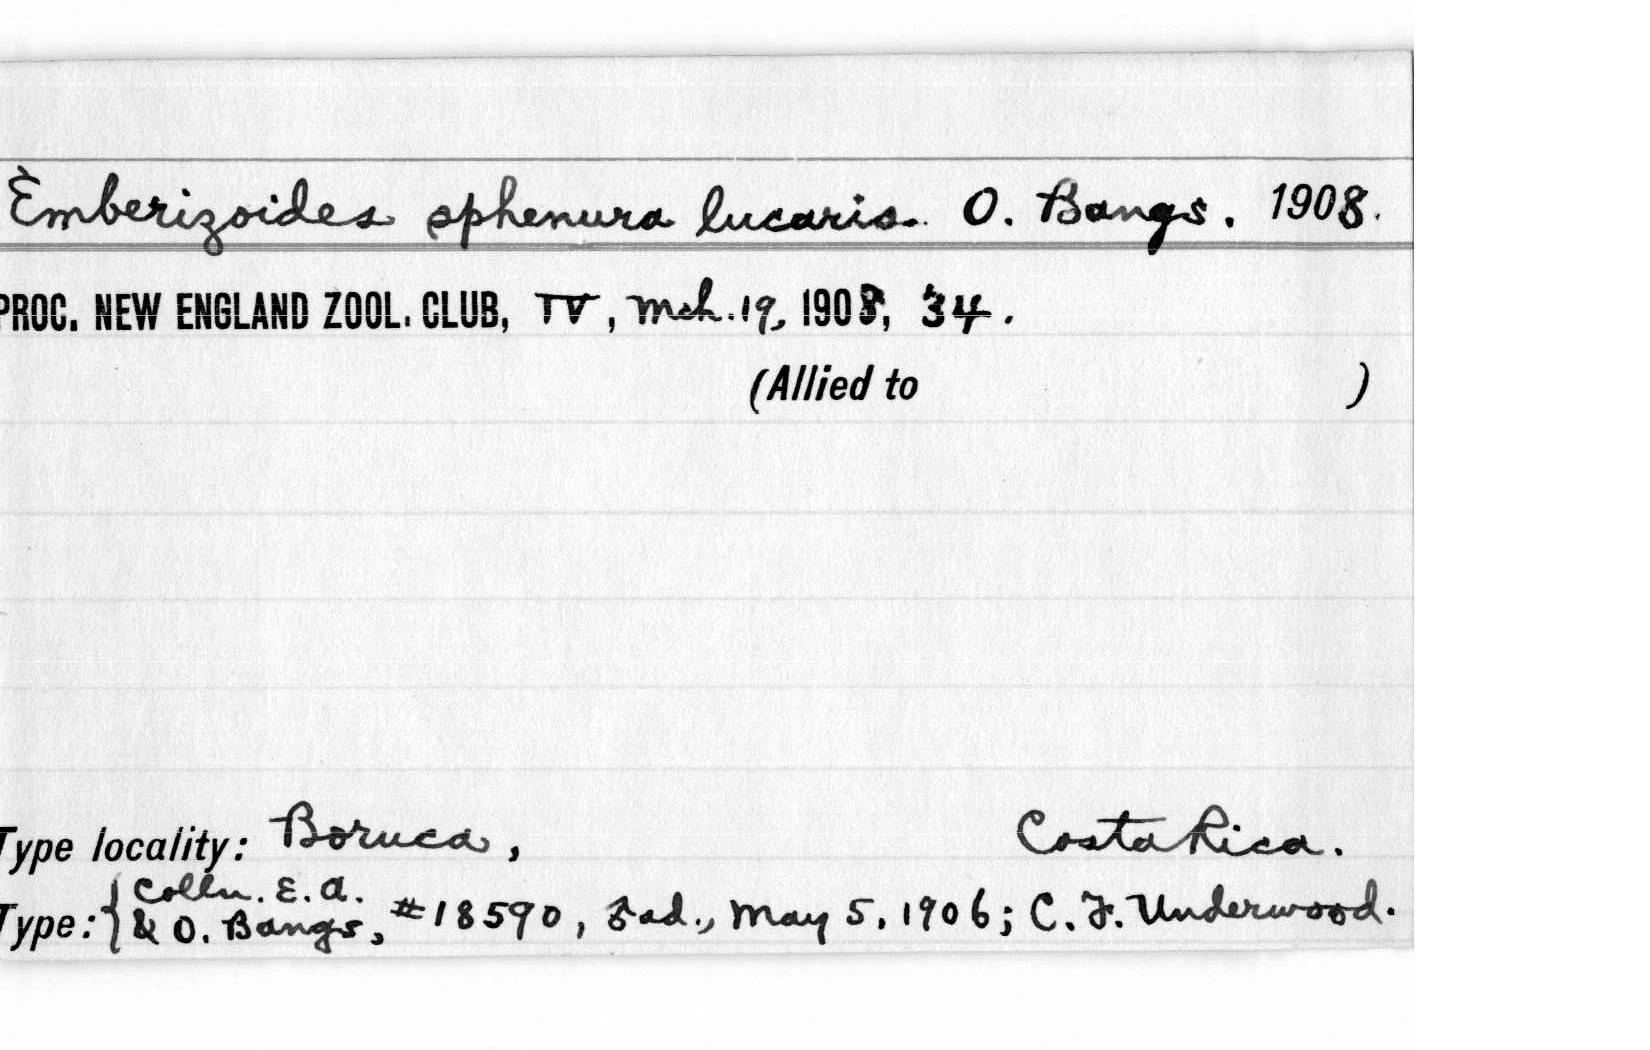 Emberizoides sphenura lucaris. O. Bangs. 1908.
PROC. NEW ENGLAND ZOOL. CLUB, IV, Mch. 19, 1908, 34.
(Allied to )
Type locality: Boruca, Costa Rica.
Type: { Colln. E. A. & O. Bangs, #18590, ad., May 5, 1906; C. F. Underwood.